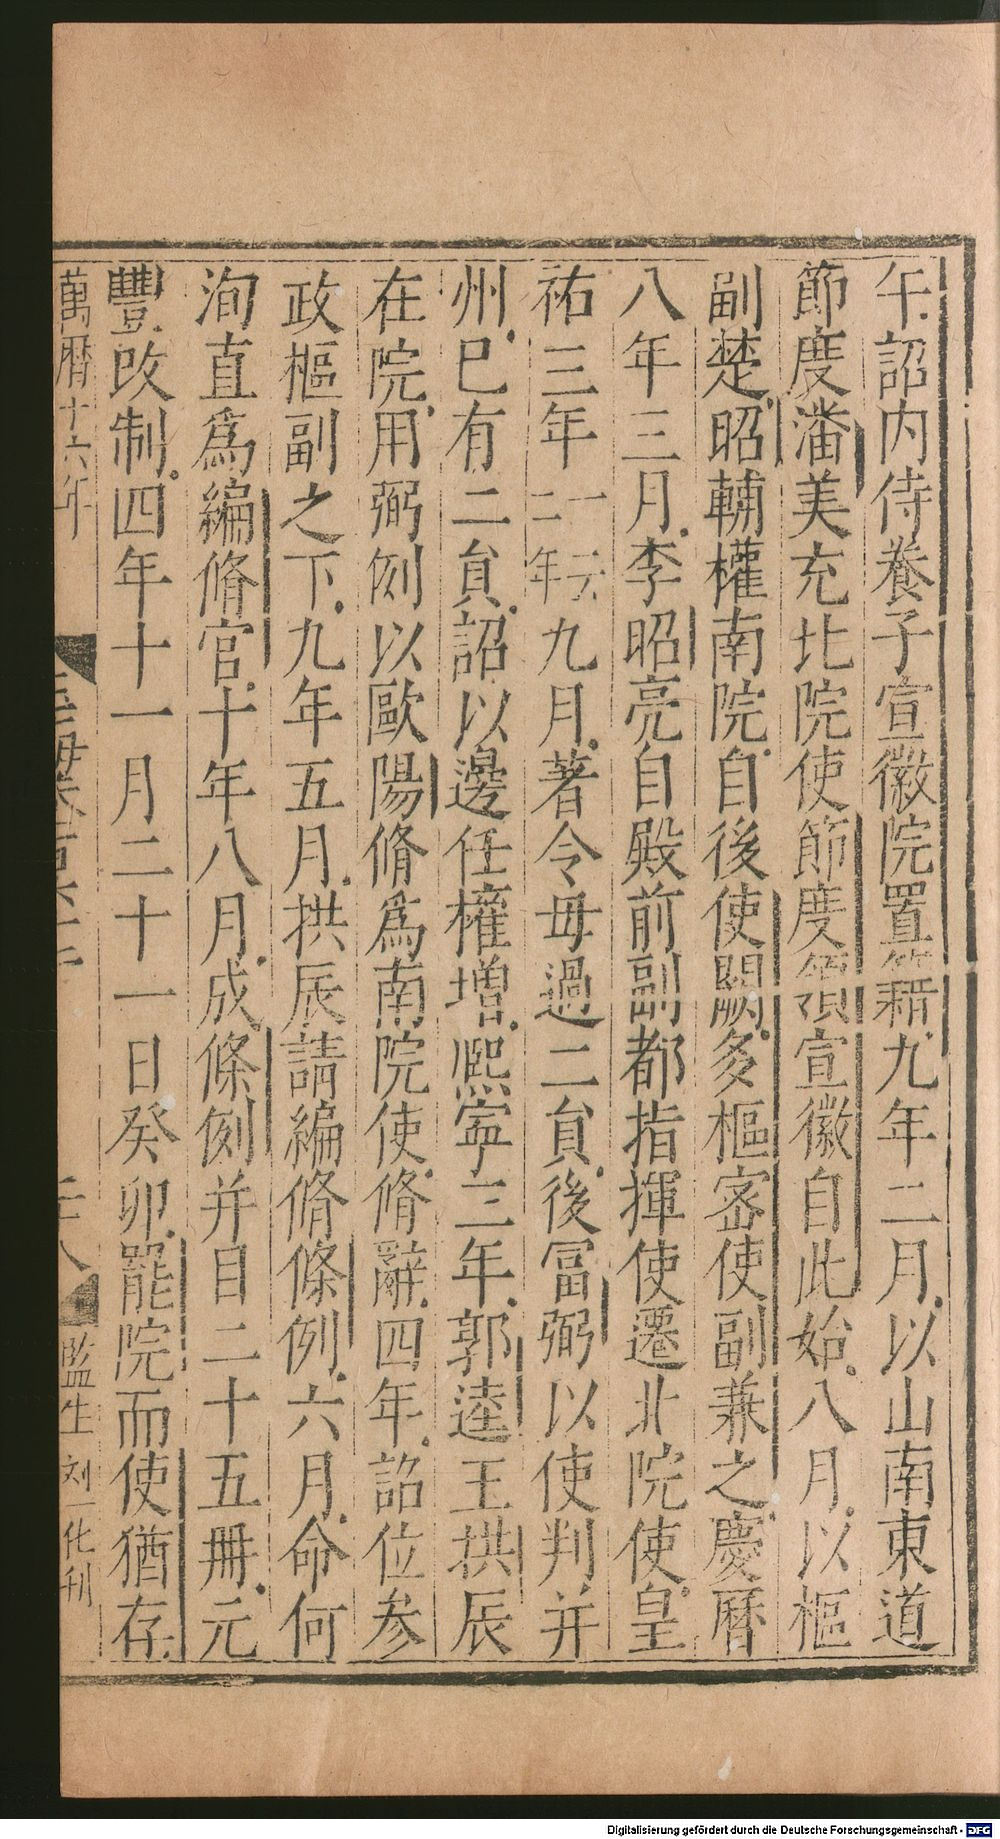 午詔内侍養子宣徽院置籍九年二月以山南東道
節度潘美充北院使節度領宣徽自此始八月以樞
副楚昭輔權南院自後使闕多樞密使副兼之慶曆
八年三月李昭亮自殿前副都指揮使遷北院使皇
祐三年一云二年九月著令毋過二員後冨弼以使判并
州已有二員詔以邊任權增熈寧三年郭逵王拱辰
在院用弼例以歐陽脩爲南院使脩辭四年詔位参
政樞副之下九年五月拱辰請編脩條例六月命何
洵直爲編脩官十年八月成條例并目二十五冊元
豐改制四年十一月二十一日癸卯罷院而使猶存
萬曆十六年
二十八
監生刘一化刊
Digitalisierung gefördert durch die Deutsche Forschungsgemeinschaft - DFG